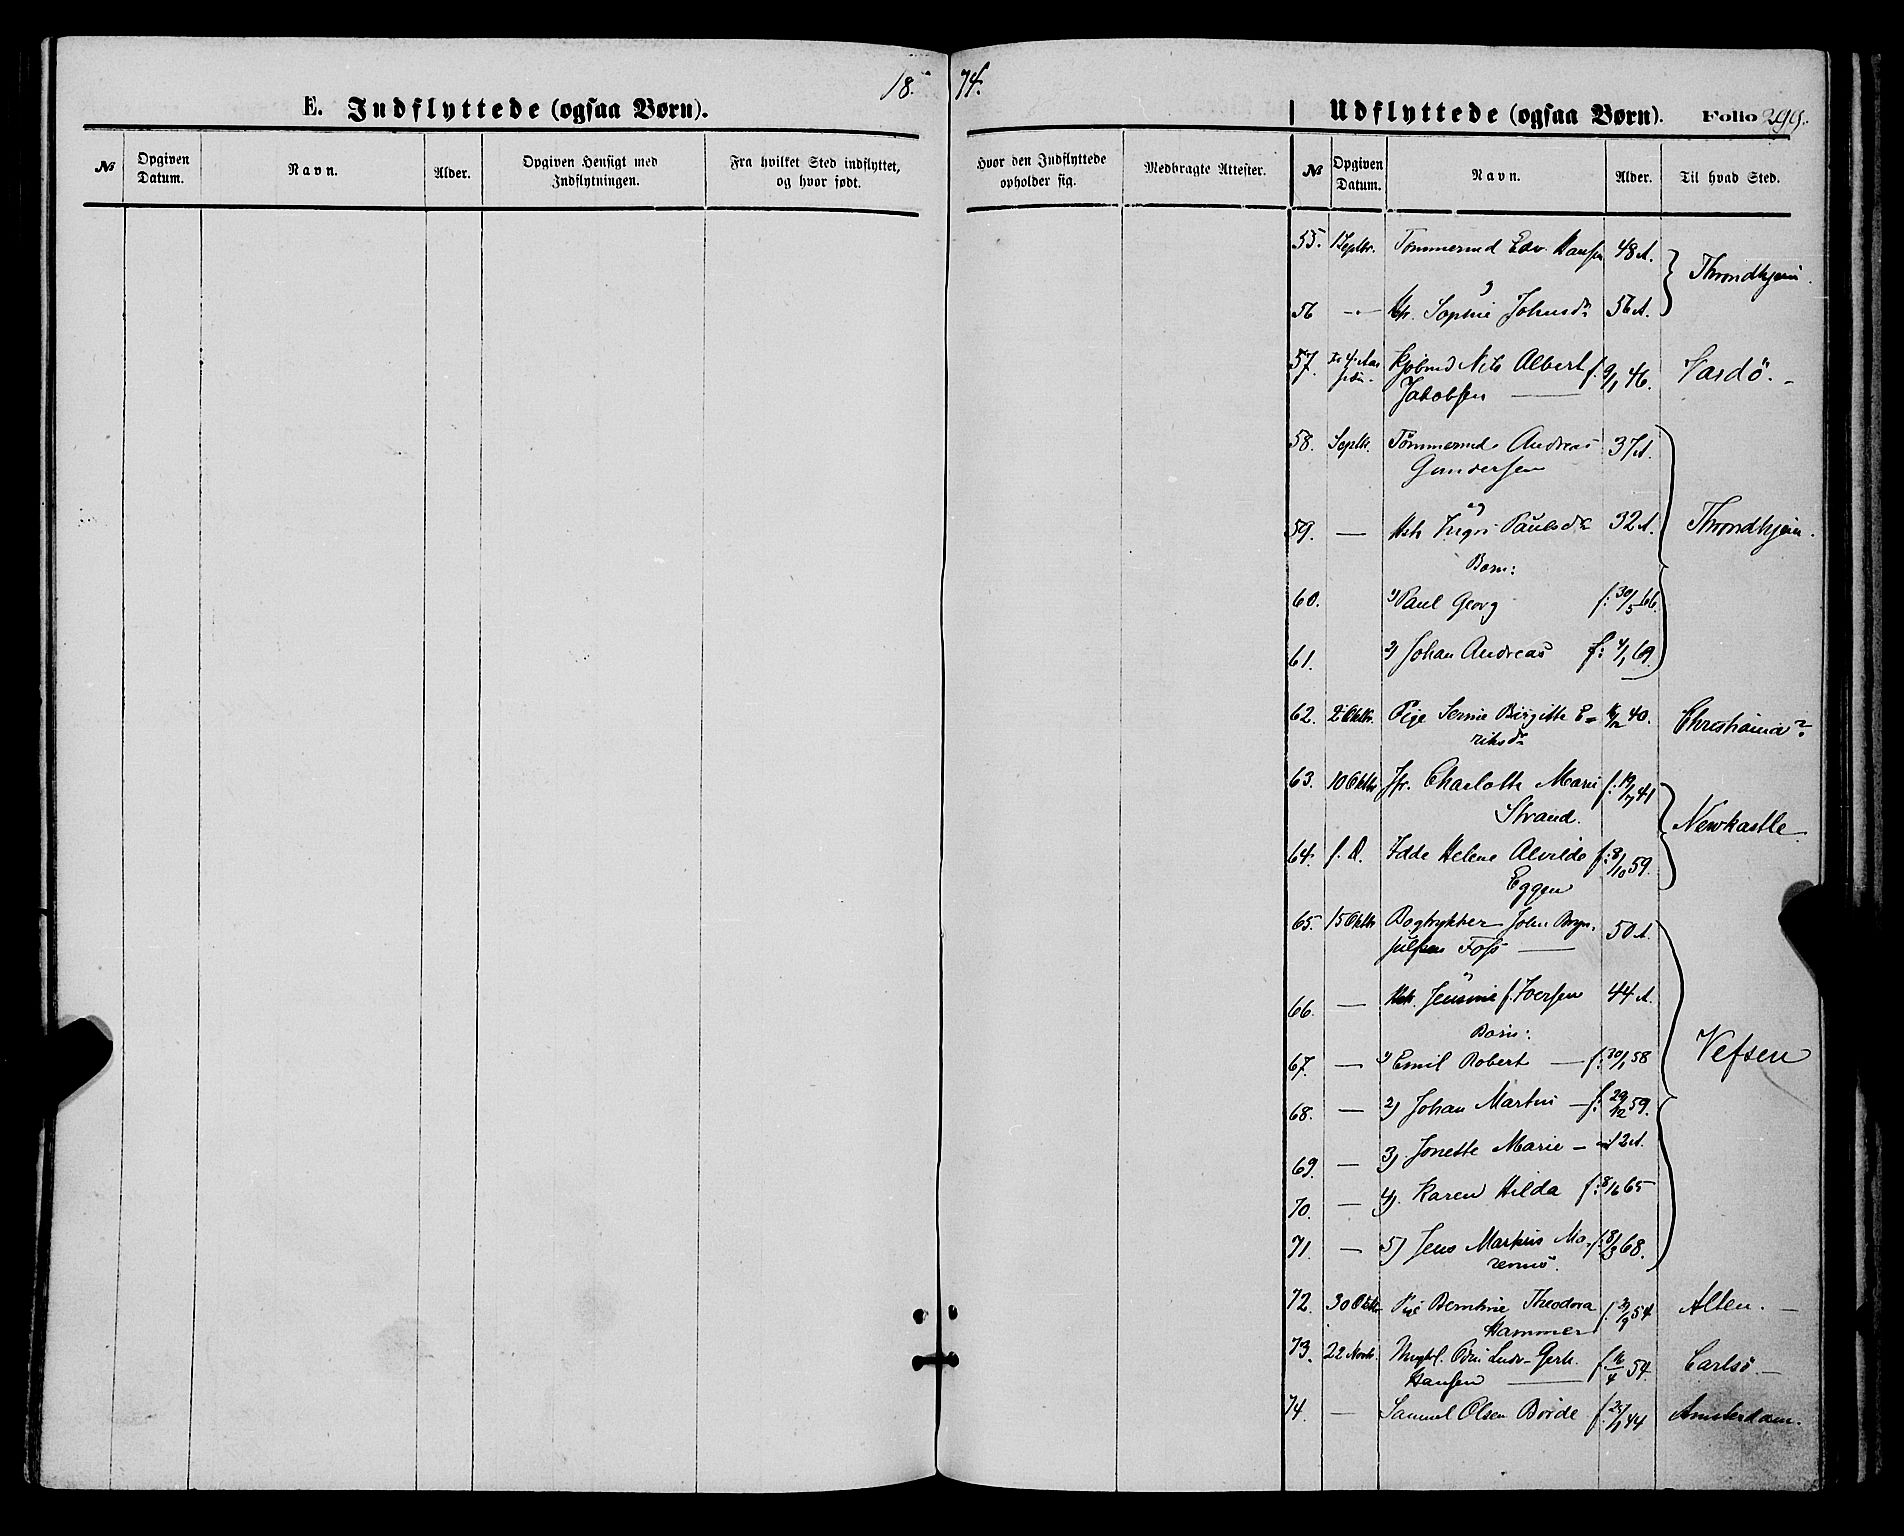 18. 74.
E. Indflyttede (ogsaa Børn).
Udflyttede (ogsaa Børn). Folio 299.
№ Opgiven Datum. Navn. Alder. Opgiven Hensigt med Indflytningen. Fra hvilket Sted indflyttet, og hvor født. Hvor den Indflyttede opholder sig. Medbragte Attester. № Opgiven Datum. Navn. Alder. Til hvad Sted.
55. 1 Septbr. Tømmermd Edv. Hansen 48 A. Throndhjem.
56 -"- Sophie Johnsdr 56 A.
57. Kjøbmd Nils Albert f. 9/1 46. Vardö.
Jakobsen
58. Septbr. Tømmermd. Andreas 37 A.
Gundersen
59. — Paulsdr 32 A. Throndhjem.
Børn:
60. 1) Paul Georg f: 30/5 66.
61. 2) Johan Andreas f: 4/1 69.
62. 2 Oktbr. Pige Birgitte E= 40. Christiania?
riksdr
63. 10 Oktbr Jfr. Charlotte Marie f: 19/7 41
Strand. Newkastle
64. f. D. Helene Alvilde f: 8/10 59.
Eggen
65. 15 Oktbr Bogtrykker John Bryn- 50 A.
julfsen Foss
66. — Jensine f. Iversen 44 A.
Børn: Vefsen
67. — 1) Emil Robert — f: 30/1 58
68. — 2) Johan Martin — f: 29/12 59.
69. — 3) Jonette Marie — 12 A.
70. — 4) Karen Hilda f: 8/6 65
71. — 5) Jens Markus Ma- f 8/3 68.
72. 30 Oktbr Pige Berntine Theodora f. 54 Alten. —
Hammer
73. 22 Novb. Ludv. Gerh. f. 54. Carlsö. —
Hansen
74. — Samuel Olsen Børde f. 44 Amsterdam.